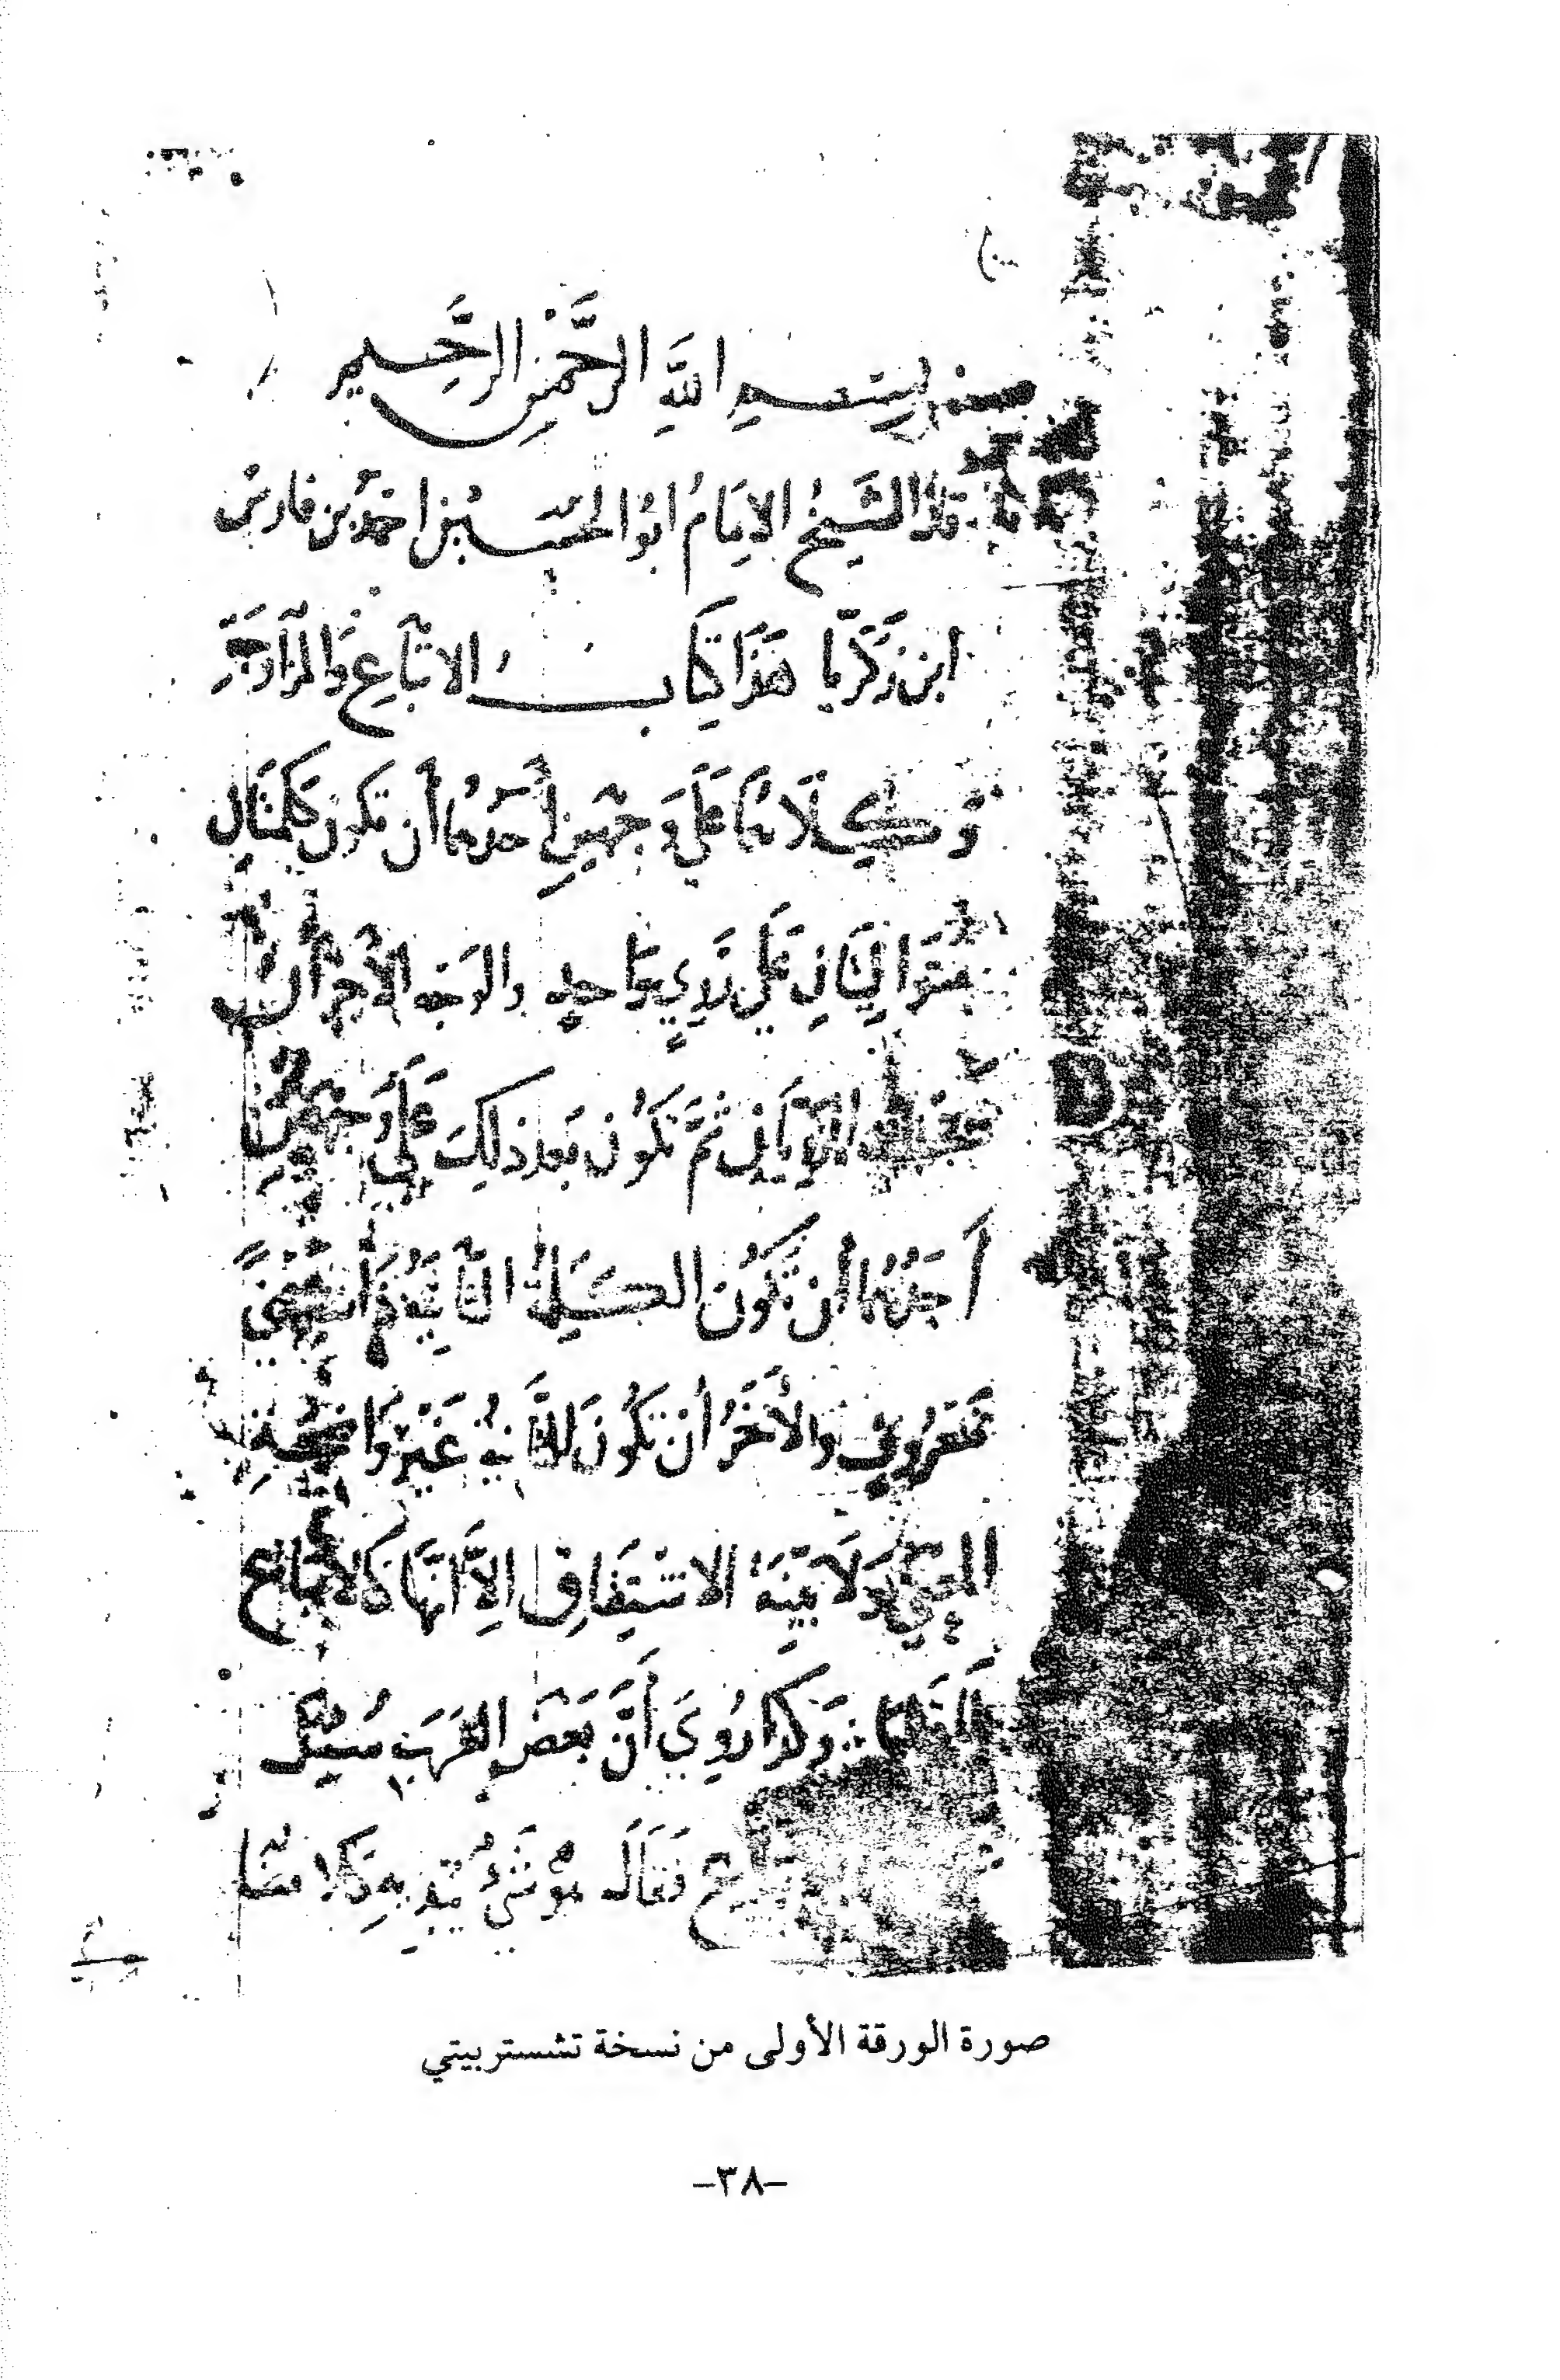 بِسْمِ اللَّهِ الرَّحْمٰنِ الرَّحِيمِ
قال الشَّيخُ الإمَامُ ابُو الحُسَين احمدُ بن فارسِ
ابن زَكَريّا هَذَا كِتَابُ الاتبَاعِ وَالمُزَاوَجَة
وَكِلَاهُمَا عَلَى وَجْهَينِ أَحَدُهُمَا أَن تكونَ كَلِمَتَانِ
مُتَوَاليَتَانِ عَلَى رَوِيٍّ وَاحِدٍ والوَجْهُ الآخرُ أَنْ
الرَّويَّانِ ثُمَّ تكُونَ بَعدَ ذلِكَ عَلَى وَجْهَيْنِ
أَحَدُهُمَا أَن تَكُونَ الكَلِمَةُ الثانِيَةُ ذَاتَ مَعْنًى
مَعْرُوفٍ وَالأخَرُ أَن تكُونَ الثَّانِيَةُ غَيْرَ وَاضِحَةِ
المَعْنَى وَلَا بَيّنَةَ الاشتِقَاقِ إلاَّ أنَّهَا كَالاتبَاعِ
وَكَذَا رُوِيَ أَنَّ بَعْضَ العَرَبِ سُئِلَ
فَقَالَ هُوَ شَيْءٌ نَتِدُ بِهِ كَلامَنَا
صورة الورقة الأولى من نسخة تشستربيتي
-٣٨-